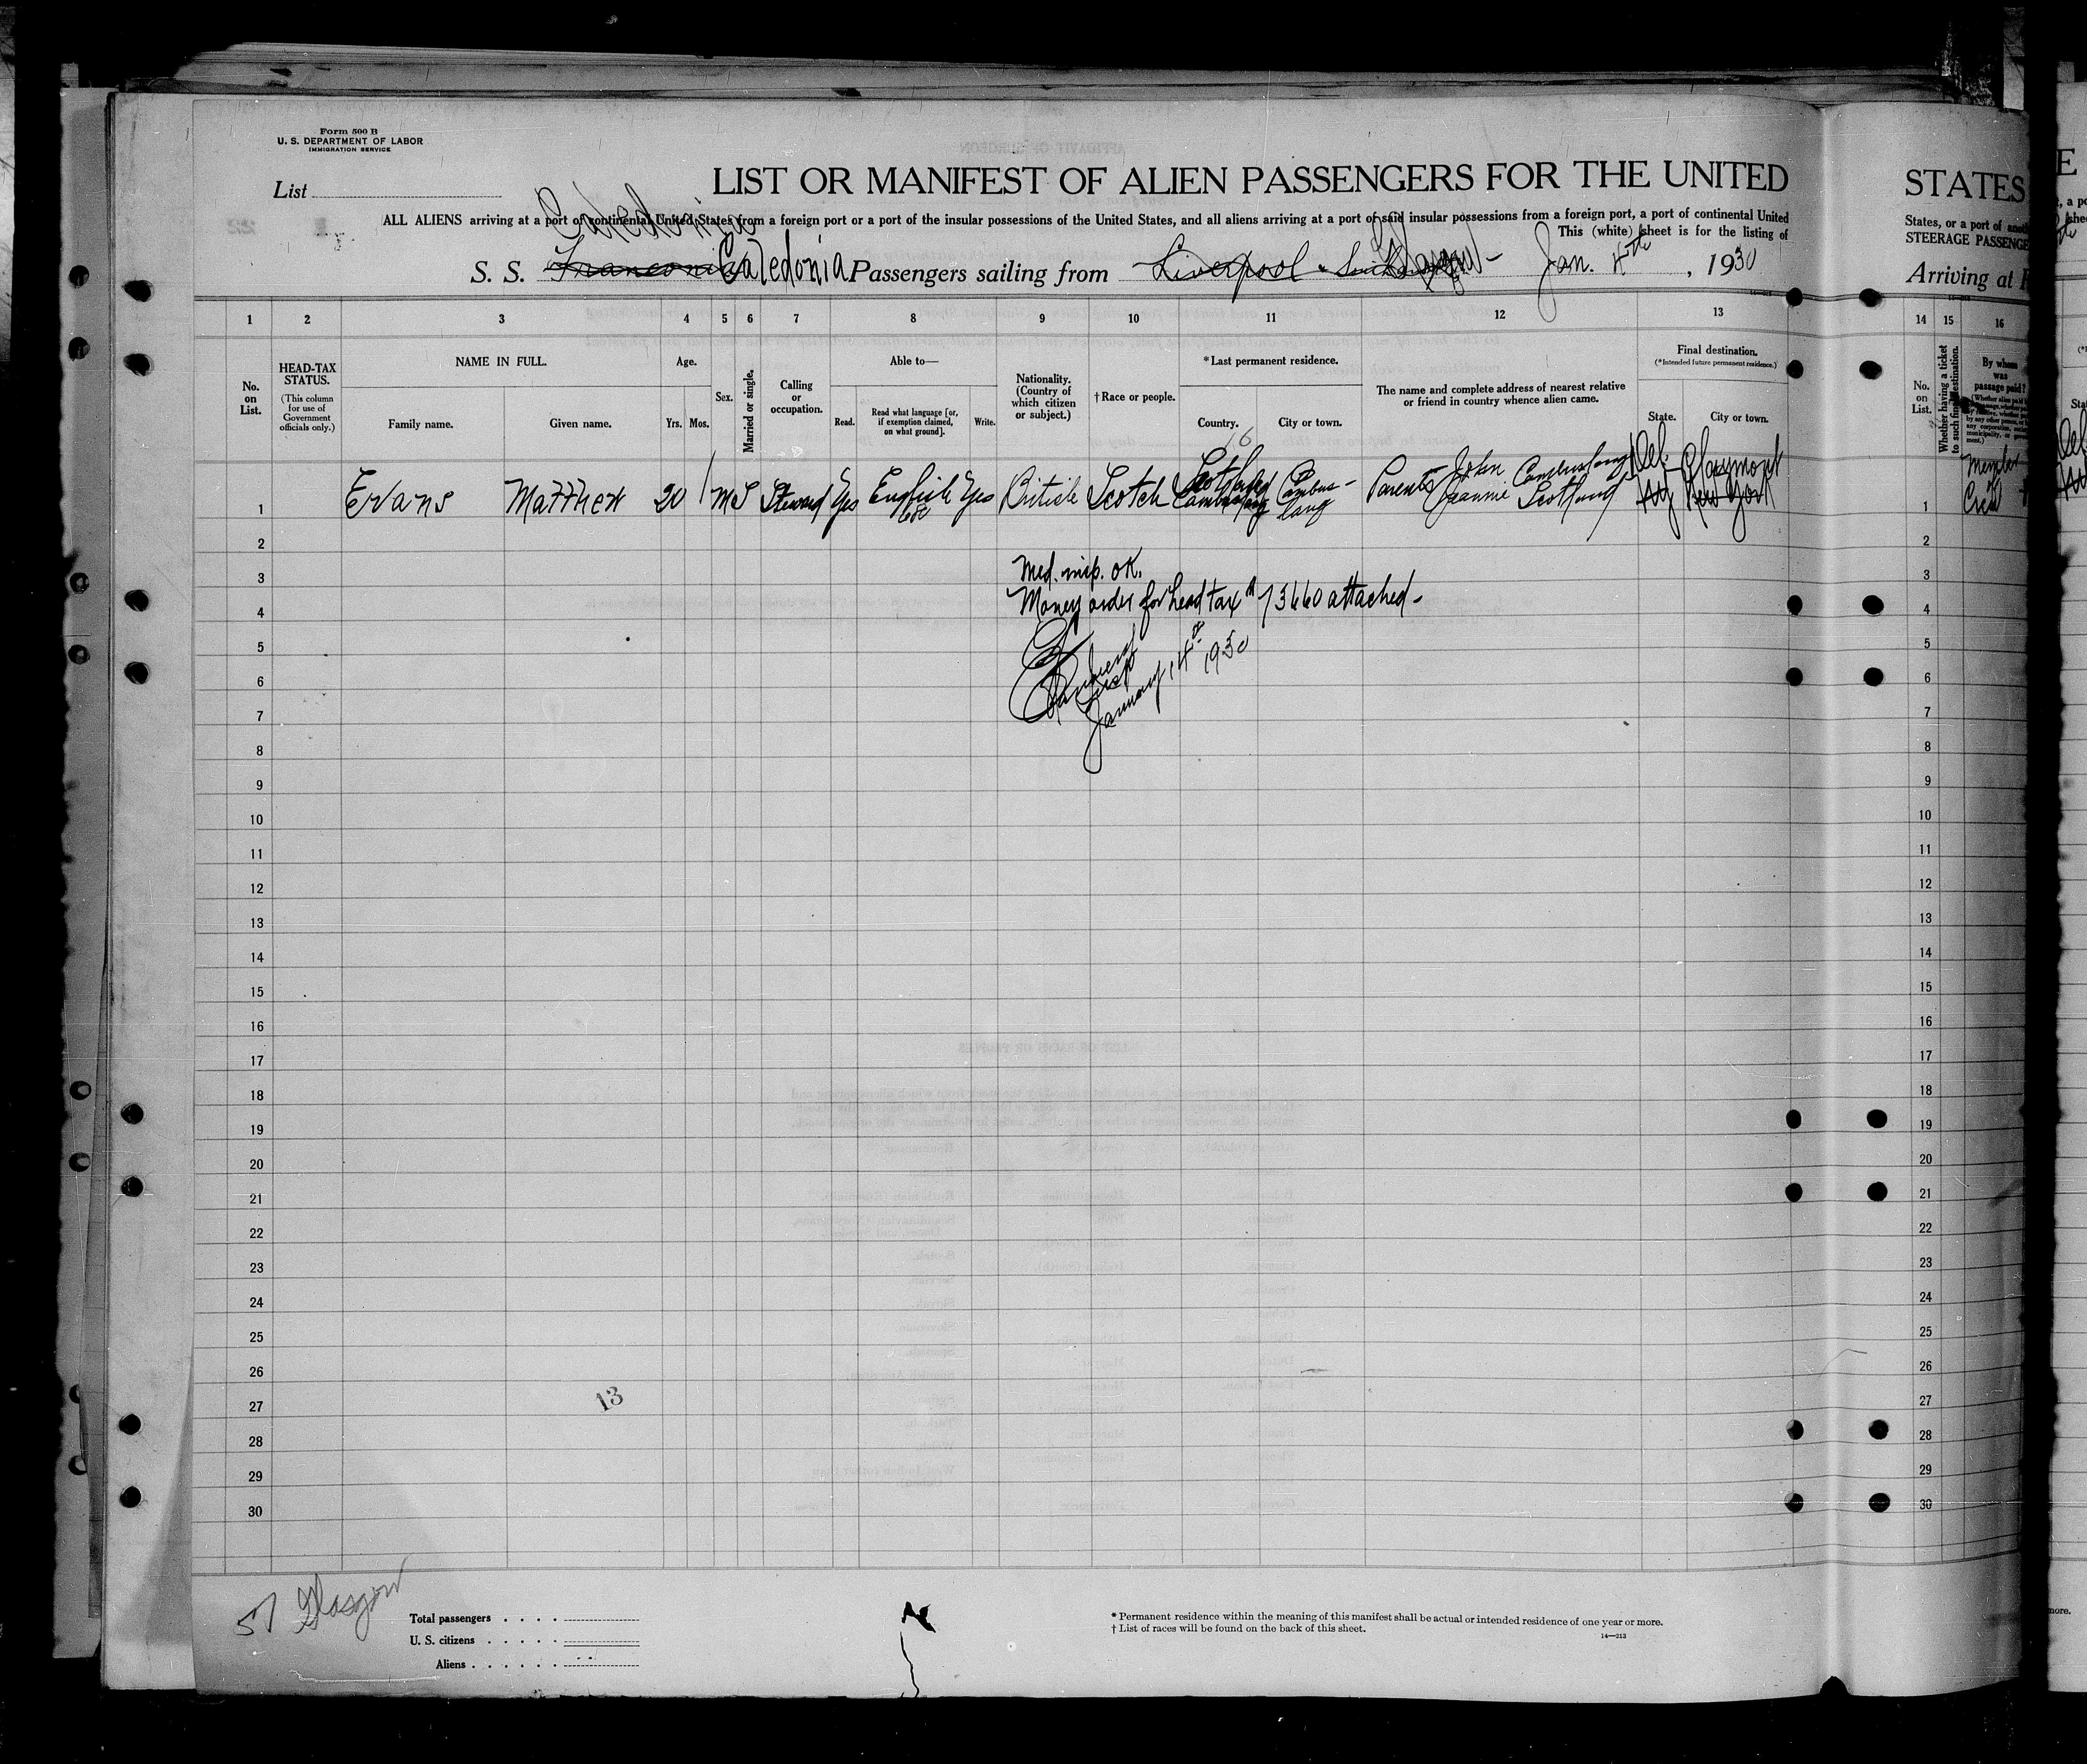 Form 500 B
U. S. DEPARTMENT OF LABOR
IMMIGRATION SERVICE
List
LIST OR MANIFEST OF ALIEN PASSENGERS FOR THE UNITED
Caledonia
ALL ALIENS arriving at a port of continental United States from a foreign port or a port of the insular possessions of the United States, and all aliens arriving at a port of said insular possessions from a foreign port, a port of continental United
This (white) sheet is for the listing of
S. S. Franconia Caledonia Passengers sailing from Liverpool Glasgow - Jan. 4th, 1930
1 2 3 4 5 6 7 8 9 10 11 12 13
No. on List.
HEAD-TAX STATUS.
(This column for use of Government officials only.)
NAME IN FULL.
Family name. Given name.
Age.
Yrs. Mos.
Sex.
Married or single.
Calling or occupation.
Able to—
Read. Read what language [or, if exemption claimed, on what ground]. Write.
Nationality. (Country of which citizen or subject.)
† Race or people.
* Last permanent residence.
Country. City or town.
The name and complete address of nearest relative or friend in country whence alien came.
Final destination.
(* Intended future permanent residence.)
State. City or town.
16
1 Evans Matthew 20 M S Steward Yes English Yes British Scotch Scotland Cambuslang Cambus-lang Parents John Jeannie Cambuslang Scotland Del. NY Claymont New York
2
3
4
5
6
7
8
9
10
11
12
13
14
15
16
17
18
19
20
21
22
23
24
25
26
27
28
29
30
Med. insp. OK.
Money order for head tax # 73660 attached -
January 14th 1930
13
57 Glasgow
Total passengers
U. S. citizens
Aliens
* Permanent residence within the meaning of this manifest shall be actual or intended residence of one year or more.
† List of races will be found on the back of this sheet.
14—213
STATES
States, or a port of
STEERAGE PASSENGE
Arriving at
14 15 16
No. on List.
Whether having a ticket to such final destination.
By whom was passage paid?
1 Member of Crew
2
3
4
5
6
7
8
9
10
11
12
13
14
15
16
17
18
19
20
21
22
23
24
25
26
27
28
29
30